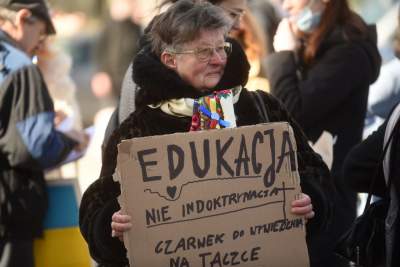 EDUKACJA
NIE INDOKTRYNACJA
CZARNEK DO WYWIEZIENIA
NA TACZCE